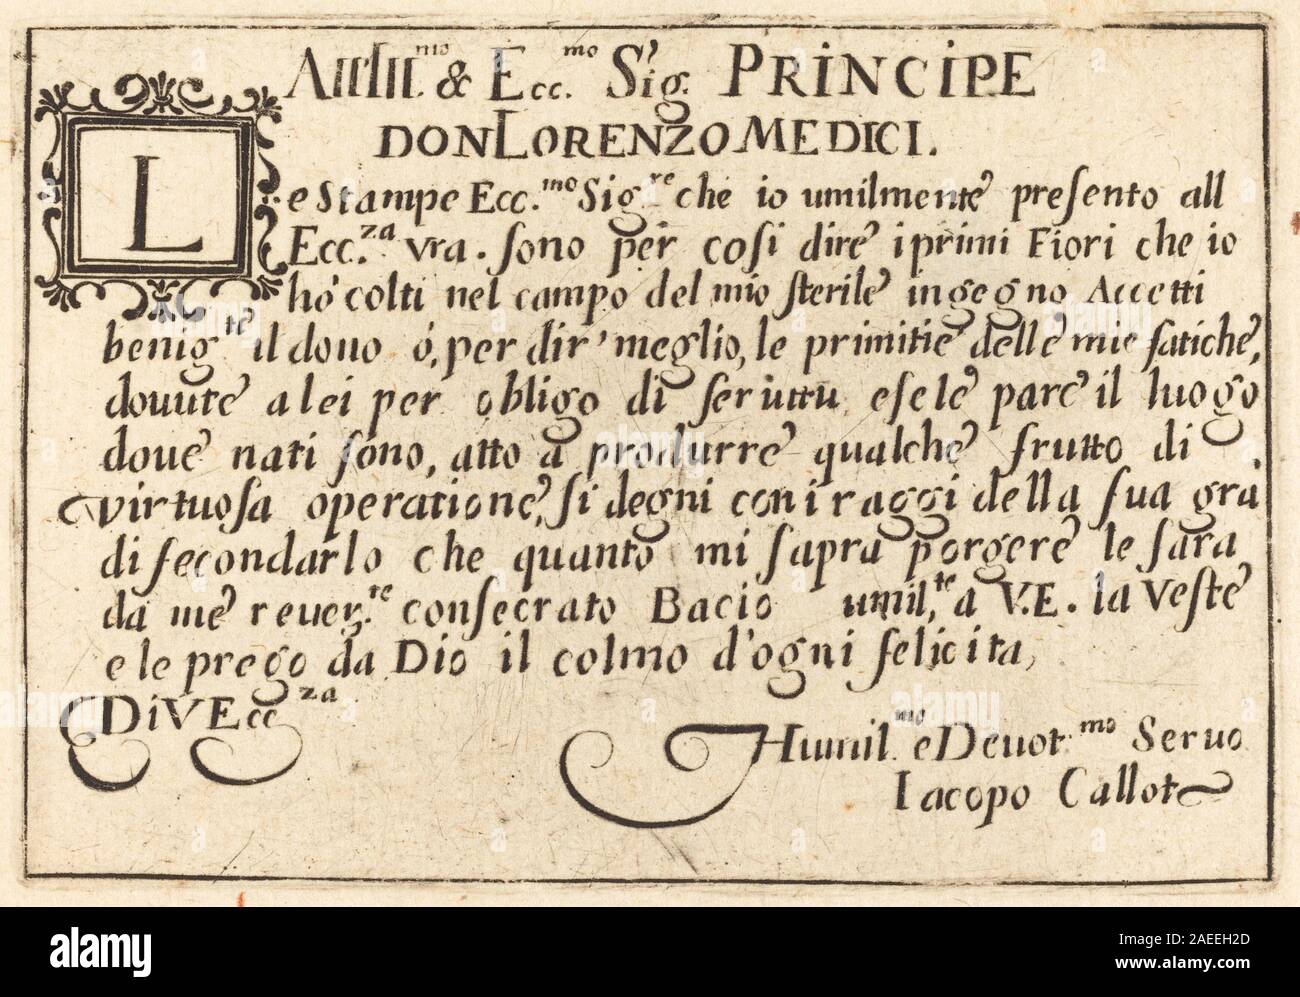 Allll.mo & Ecc.mo Sig.r PRiNCiPE
DON LORENZO MEDICI.
L
e Stampe Ecc.mo Sig.re che io umilmente presento all
Ecc.za vra. sono per cosi dire i primi Fiori che io
hò colti nel campo del mio sterile ingegno Accetti
benig.te il dono ó, per dir' meglio, le primitie delle mie fatiche,
douute a lei per obligo di seruittu, e se le pare il luogo
doue nati sono, atto a produrre qualche frutto di
virtuosa operatione, si degni con i raggi della sua gra
di secondarlo che quanto mi sapra porgere le sara
da me reuer.te consecrato Bacio umil.te a V.E. la Veste
e le prego da Dio il colmo d'ogni felicita,
Di V Ecc za
Humil.mo e Deuot.mo Seruo
Iacopo Callot
alamy
Image ID: 2AEEH2D
www.alamy.com